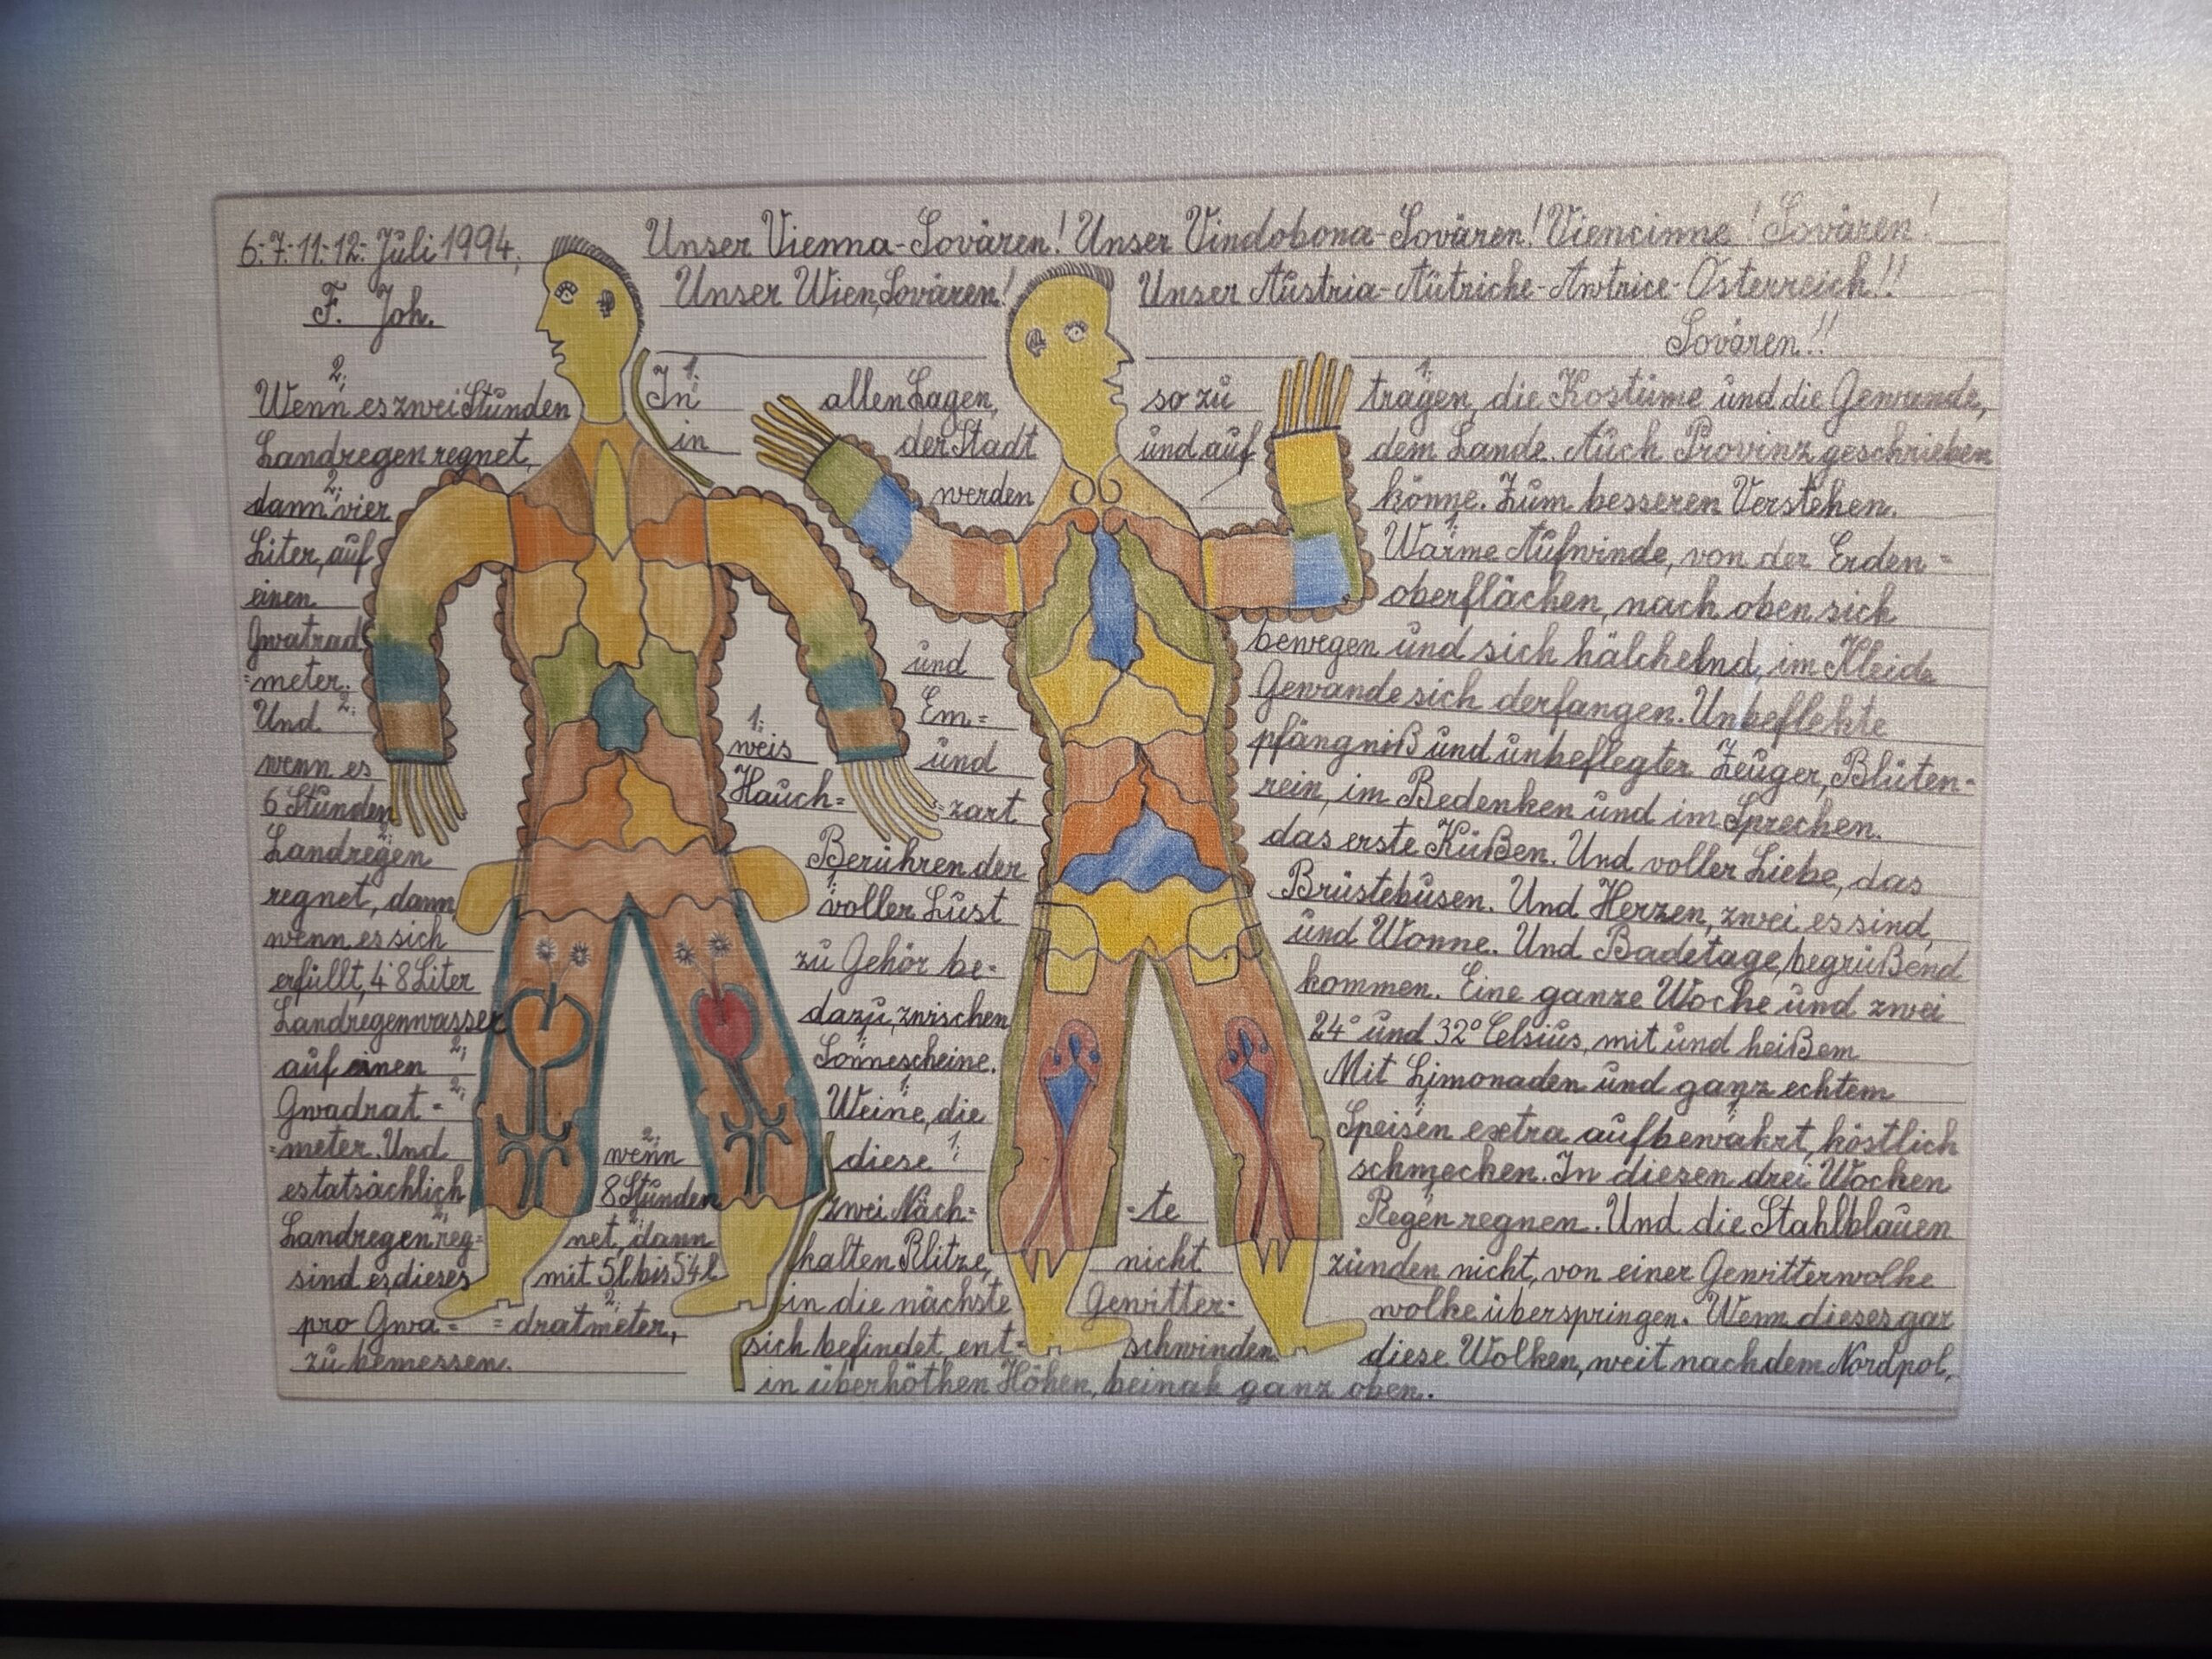 6.-7.-11.-12.- Juli 1994, Unser Vienna-Sovären! Unser Vindobona-Sovären! Viencinne! Sovären!
F. Joh. Unser Wien, Sovären! Unser Austria-Autriche-Awtrice-Österreich!!
Sovären!!
2;
Wenn es zwei Stunden
Landregen regnet,
2;
dann vier
Liter, auf
einen
Gwatrad
=meter.
Und 2;
wenn es
6 Stunden
2;
Landregen
regnet, dann
wenn es sich
erfüllt, 4 8 Liter
Landregenwasser
auf einen 2;
Gwadrat= 2;
=meter. Und 2; wenn
es tatsächlich 8 Stunden
Landregen reg= net, dann
sind es, dieses mit 5l bis 5 4 l
pro Gwa= =dratmeter,
zu bemessen.
1; 1;
In allen Lagen, so zu tragen, die Kostüme und die Gewande,
in der Stadt und auf dem Lande. Auch Provinz geschrieben
werden könne. Zum besseren Verstehen.
Warme Aufwinde, von der Erden=
oberflächen, nach oben sich
bewegen und sich hälchelnd, im Kleide
und Gewande sich derfangen. Unbeflekte
Em= pfängniß und unbeflegter Zeuger, Blüten=
1;
weis und rein, im Bedenken und im Sprechen.
Hauch= =zart das erste Küßen. Und voller Liebe, das
Berühren der Brüstebusen. Und Herzen, zwei es sind,
voller Lust und Wonne. Und Badetage, begrüßend
zu Gehör be= kommen. Eine ganze Woche und zwei
dazu, zwischen 24° und 32° Celsius, mit und heißem
Sonnescheine. Mit Limonaden und ganz echtem
Weine, die Speisen extra aufbewahrt, köstlich
diese schmecken. In diesen drei Wochen
zwei Näch= -te Regen regnen. Und die Stahlblauen
halten Blitze, nicht zünden nicht, von einer Gewitterwolke
in die nächste Gewitter- wolke überspringen. Wenn dieses gar
sich befindet, ent- schwinden diese Wolken, weit nach dem Nordpol,
in überhöthen Höhen, beinah ganz oben.